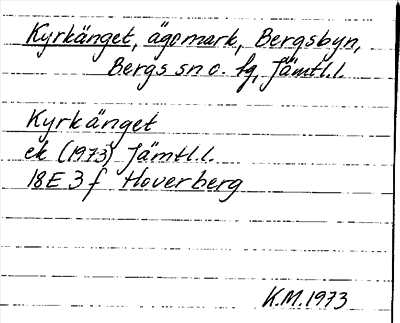 Kyrkänget, ägomark, Bergsbyn,
Bergs sn o. fg, Jämtl.l.
Kyrkänget
ek (1973) Jämtl.l.
18E 3f Hoverberg
K.M.1973